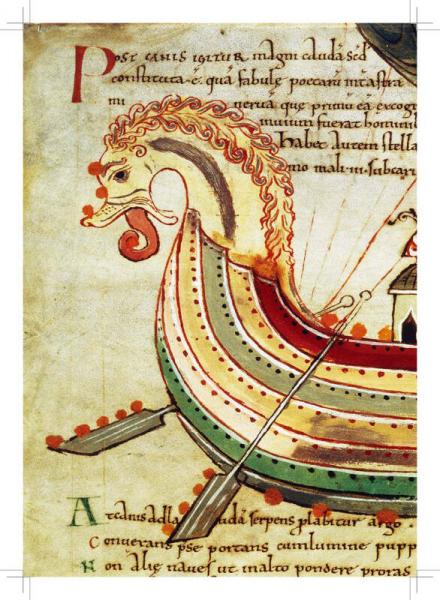 Post canis igitur magni caudā sed
constituta·ē· quā fabulę poetarū int astra
mi nerua que primū eā excogi
fuerat hominib
Habet Autem stella
mo mali·iii·subcari
At canis ad uda serpens plabitur argo·
Conuersans pse portans cum lumine pupp
Non Alię naues ut inalto pondere proras